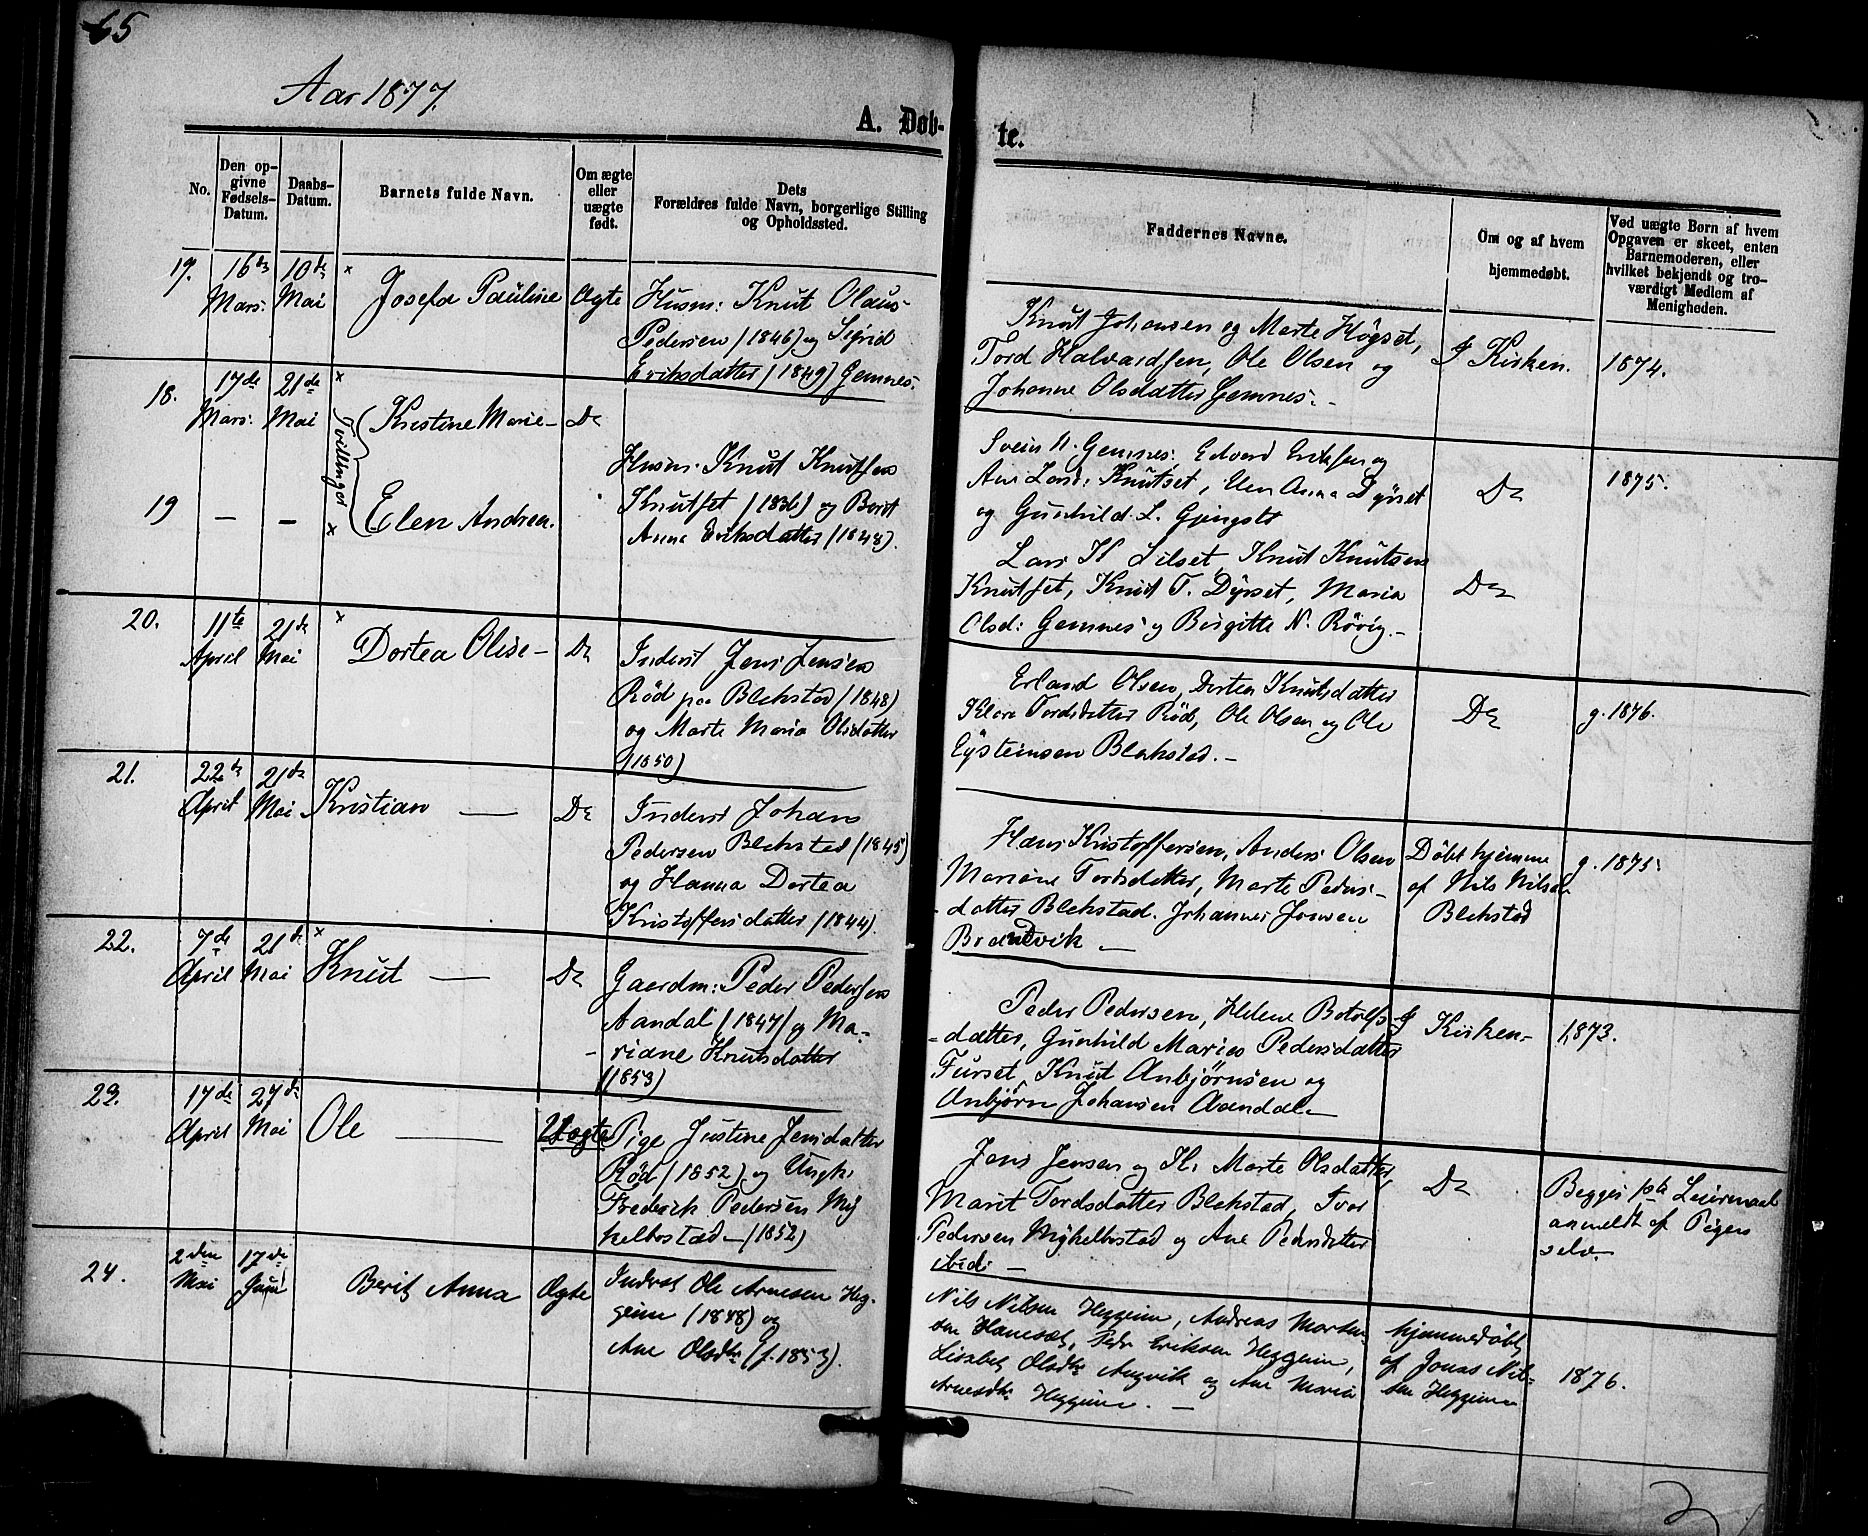 65
Aar 1877.
A. Døb-
te.
No.
Den op-
givne
Fødsels-
Datum.
Daabs-
Datum.
Barnets fulde Navn.
Om ægte
eller
uægte
født.
Dets
Forældres fulde Navn, borgerlige Stilling
og Opholdssted.
Faddernes Navne.
Om og af hvem
hjemmedøbt.
Ved uægte Børn af hvem
Opgaven er skeet, enten
Barnemoderen, eller
hvilket bekjendt og tro-
værdigt Medlem af
Menigheden.
17.
16de
Mars.
10de
Mai
×
Josefa Pauline
Ægte
Husm: Knut Olaus
Pedersen (1846) og Sigrid
Eriksdatter (1849) Gemnes.
Knut Johansen og Marte Høgset,
Tord Halvardsen, Ole Olsen og
Johanne Olsdatter Gemnes. -
I Kirken.
1874.
18.
17de
Mars.
21de
Mai
×
Tvillinger
Kristine Marie -
Do
19
-
-
×
Elen Andrea.
Husm. Knut Knutsen
Knutset (1836) og Berit
Anna Eriksdatter (1848).
Svein H. Gemnes. Edvard Eriksen og
Ane Larsd: Knutset, Elen Anna Dyrset
og Gunhild L. Gjengstø
Do
1875.
Lars K Silset, Knut Knutsen
Knutset, Knut T. Dyrset, Maria
Olsd: Gemnes og Birgitte N. Røvig. -
Do
20.
11te
April
21de
Mai
×
Dortea Olise -
Do
Inderst Jens Jensen
Rød paa Blekstad (1848)
og Marte Maria Olsdatter
(1850)
Erland Olsen, Dortea Knutsdatter
Klara Tordsdatter Rød, Ole Olsen og Ole
Eysteinsen Blekstad. -
Do
g. 1876.
21.
22de
April
21de
Mai
Kristian -
Do
Inderst Johan
Pedersen Blekstad (1845)
og Hanna Dortea
Kristoffersdatter (1844).
Hans Kristoffersen, Anders Olsen
Mariane Tordsdatter, Marte Peders-
-datter Blekstad. Johannes Jonsen
Brandvik -
Døbt hjemme
af Nils Nilsen
Blekstad
g. 1875.
22.
7de
April
21de
Mai
×
Knut -
Do
Gaardm: Peder Pedersen
Aandal (1847) og Ma-
- riane Knutsdatter
(1853)
Peder Pedersen, Helene Botolfs-
-datter, Gunhild Maries Pedersdatter
Furset, Knut Anbjørnsen og
Anbjørn Johansen Aandal -
I Kirken -
1873.
23.
17de
April
27de
Mai
Ole -
Uægte
Pige Justine Jensdatter
Rød (1852) og Ungk.
Frederik Pedersen My
kelbostad - (1852)
Jens Jensen og K. Marte Olsdatter,
Marit Tordsdatter Blekstad, Ivar
Pedersen Mykelbostad og Ane Pedersdatter
ibid. -
Do
Begges 1ste Leiermaal
anmeldt af Pigen
selv
24.
2den
Mai
17de
Juni
Berit Anna
Ægte
Inderst Ole Arnesen Heg-
geim (1848) og
Ane Olsdtr (f. 1853).
Nils Nilsen Heggeim, Andreas Morten-
sen Hanesæt, Peder Eriksen Heggeim,
Lisabet Olsdtr Angvik og Ane Maria
Arnesdtr Heggeim. -
hjemmedøbt
af Jonas Nil-
sen Heggeim
1876.